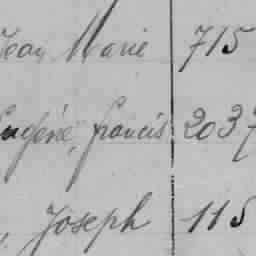 Jean Marie 715
Eugène, francis 2037
, Joseph 115